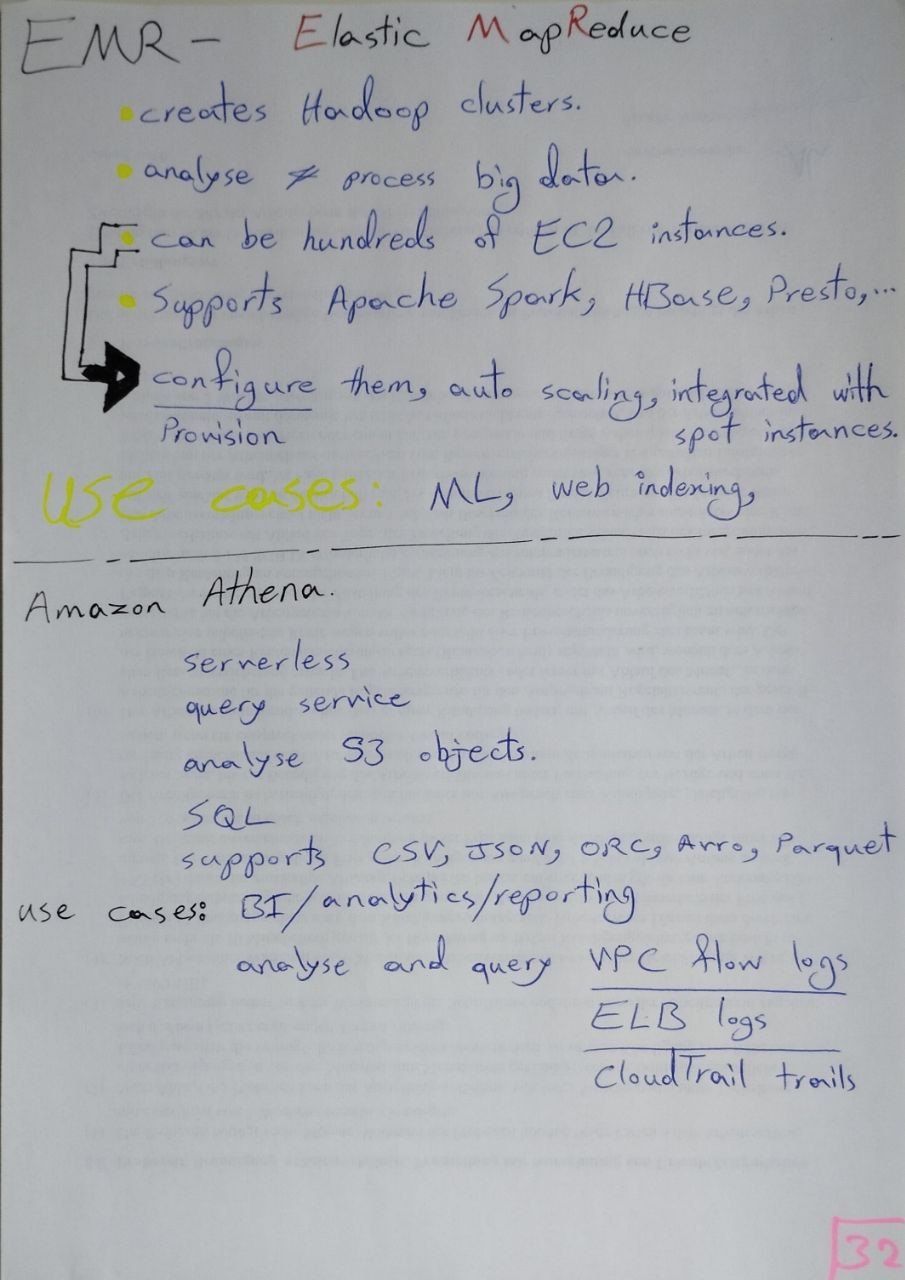 EMR - Elastic MapReduce
• creates Hadoop clusters.
• analyse & process big data.
• can be hundreds of EC2 instances.
• Supports Apache Spark, HBase, Presto,...
configure them, auto scaling, integrated with
Provision spot instances.
Use cases: ML, web indexing,
Amazon Athena.
serverless
query service
analyse S3 objects.
SQL
supports CSV, JSON, ORC, Avro, Parquet
use cases: BI/analytics/reporting
analyse and query VPC flow logs
ELB logs
CloudTrail trails
32